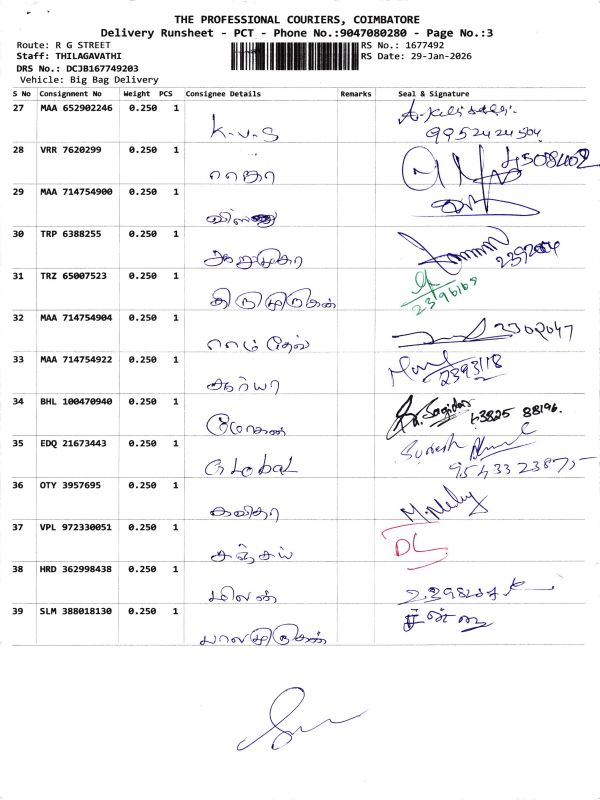 THE PROFESSIONAL COURIERS, COIMBATORE
Delivery Runsheet - PCT - Phone No.:9047080280 - Page No.:3
Route: R G STREET
Staff: THILAGAVATHI
DRS No.: DCJB167749203
Vehicle: Big Bag Delivery
RS No.: 1677492
RS Date: 29-Jan-2026
S No Consignment No Weight PCS Consignee Details Remarks Seal & Signature
27 MAA 652902246 0.250 1 K.V.S
9952424504
28 VRR 7620299 0.250 1
29 MAA 714754900 0.250 1
30 TRP 6388255 0.250 1 ஆறுமுகா
31 TRZ 65007523 0.250 1 திருமுருகன் 2396169
32 MAA 714754904 0.250 1 ராம் தேவ்
33 MAA 714754922 0.250 1 ஆர்யா 2393118
34 BHL 100470940 0.250 1 மோகன் 63825 88196.
35 EDQ 21673443 0.250 1 Global Suresh
36 OTY 3957695 0.250 1 கவிதா
37 VPL 972330051 0.250 1 சஞ்சய்
38 HRD 362998438 0.250 1 மிலன்
39 SLM 388018130 0.250 1 பாலமுருகன்